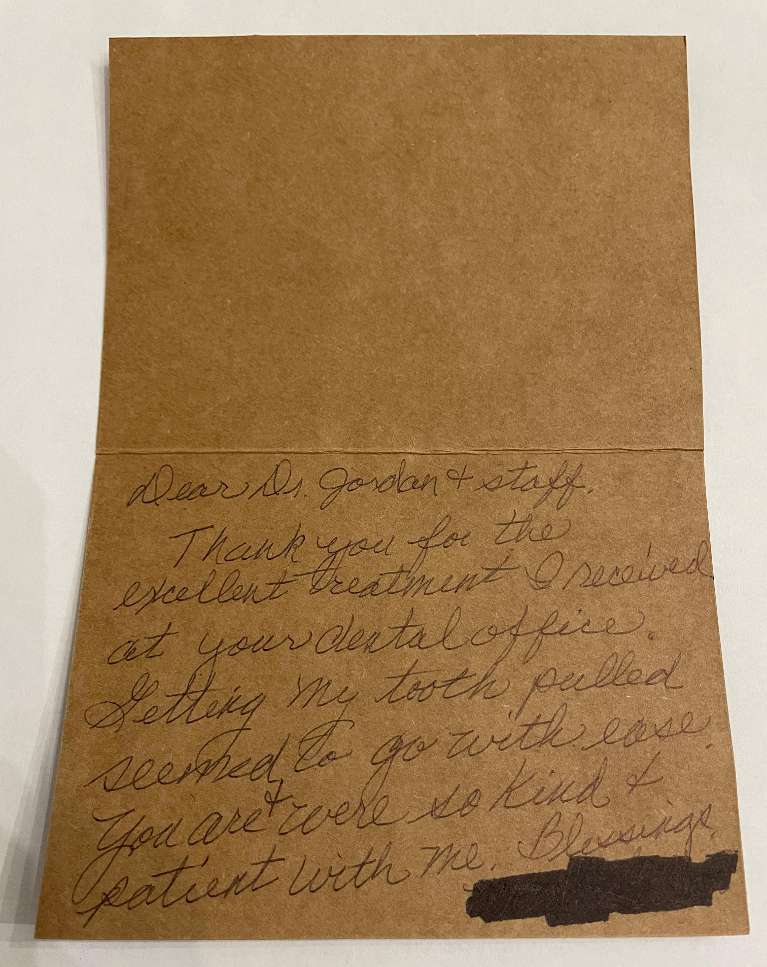 Dear Dr. Jordan & staff.
Thank you for the
excellent treatment I received
at your dental office.
Getting my tooth pulled
seemed to go with ease.
You are & were so kind &
patient with me. Blessings,